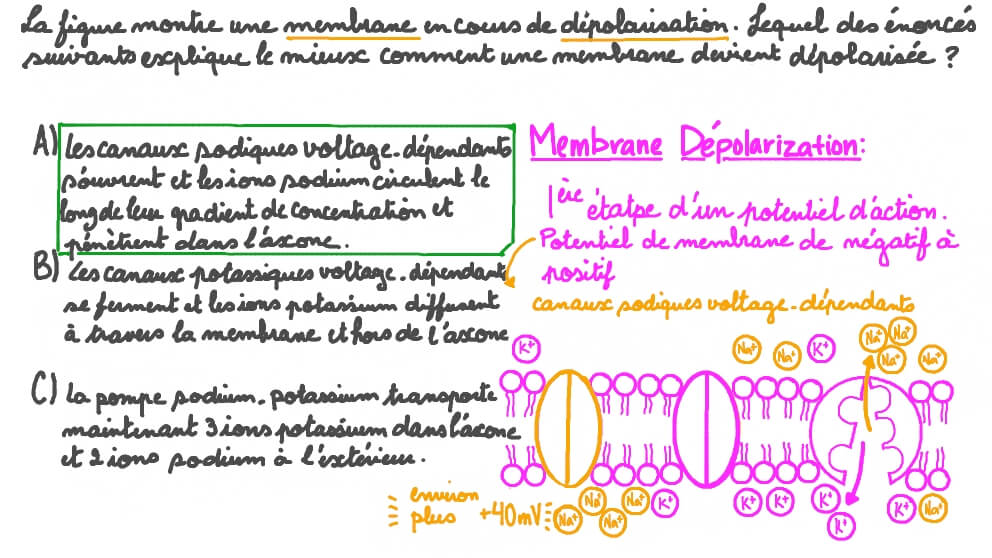 La figure montre une membrane en cours de dépolarisation. Lequel des énoncés
suivants explique le mieux comment une membrane devient dépolarisée ?
A) Les canaux sodiques voltage-dépendants
s'ouvrent et les ions sodium circulent le
long de leur gradient de concentration et
pénètrent dans l'axone.
B) Les canaux potassiques voltage-dépendants
se ferment et les ions potassium diffusent
à travers la membrane et hors de l'axone
C) La pompe sodium-potassium transporte
maintenant 3 ions potassium dans l'axone
et 2 ions sodium à l'extérieur.
Membrane Dépolarization:
1ère étatpe d'un potentiel d'action.
Potentiel de membrane de négatif à
positif
canaux sodiques voltage-dépendants
K+ Na+ Na+ K+ Na+ Na+ Na+ Na+
environ
plus +40mV
Na+ Na+ Na+ Na+ K+ K+ K+ K+ K+ K+ Na+